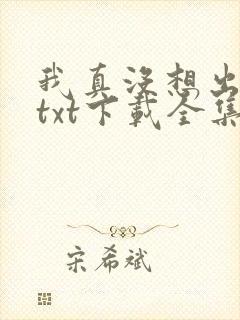 我真没想出
txt下载全集
宋希斌